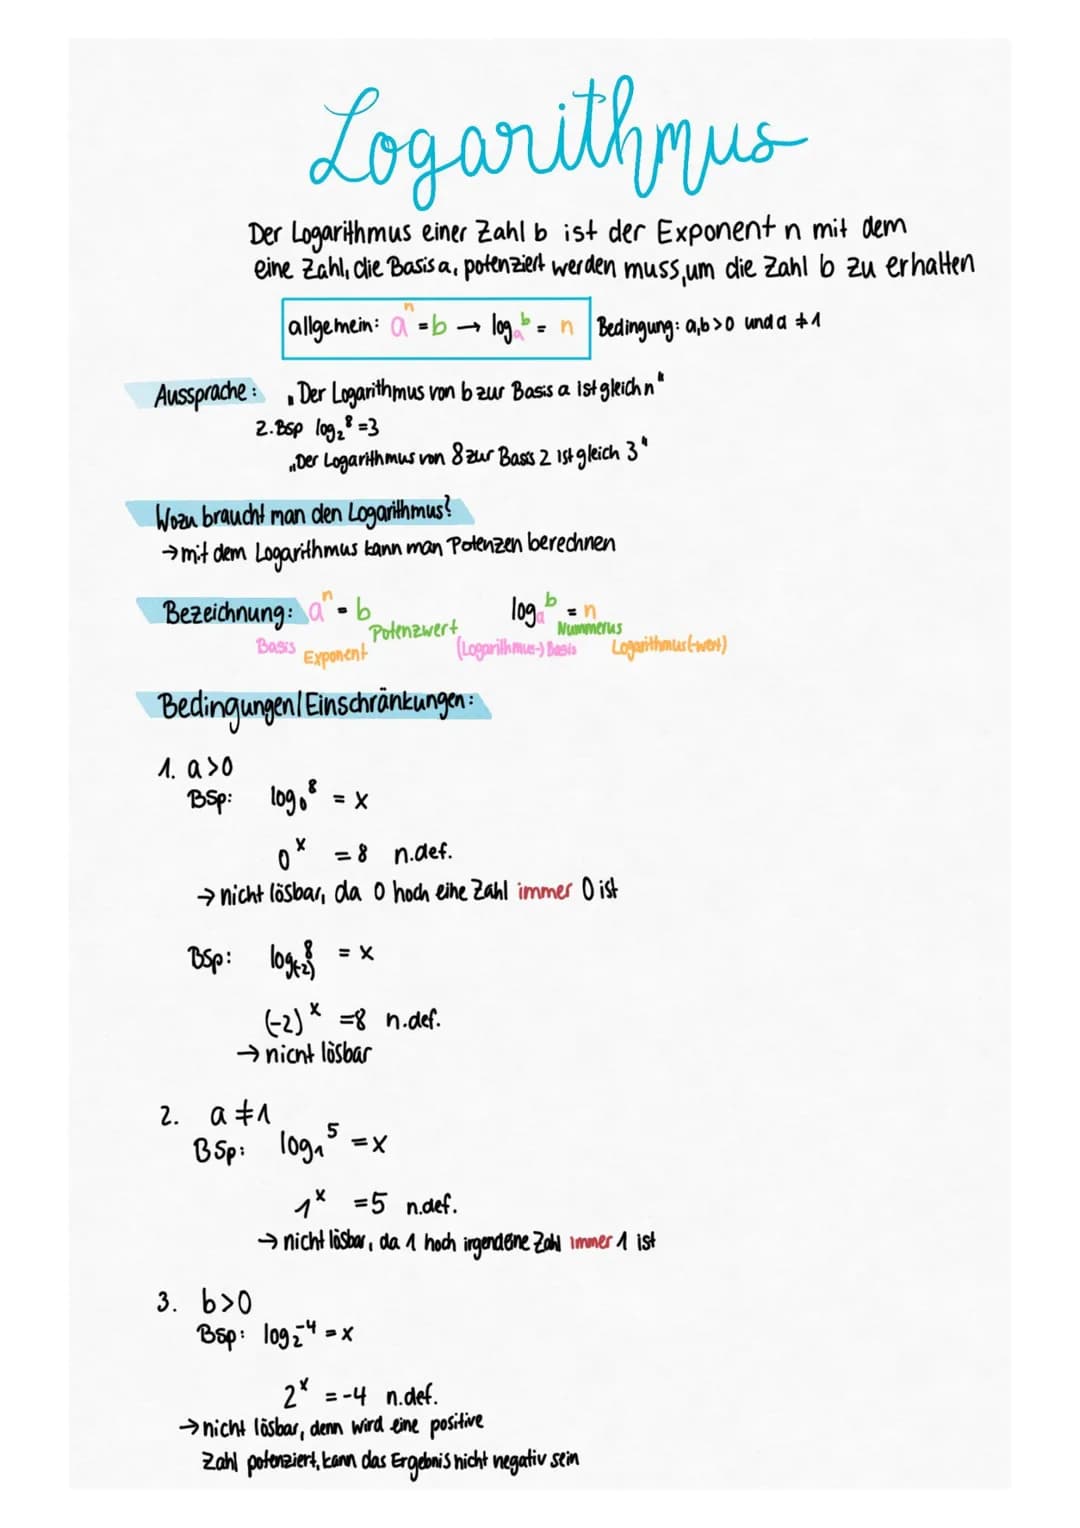 Logarithmus
Der Logarithmus einer Zahl b ist der Exponent n mit dem
eine Zahl, die Basis a, potenziert werden muss, um die Zahl b zu erhalten
allgemein: aⁿ = b → logₐᵇ = n Bedingung: a,b>0 und a ≠1
Aussprache: „Der Logarithmus von b zur Basis a ist gleich n"
2.Bsp log₂⁸ =3
„Der Logarithmus von 8 zur Basis 2 ist gleich 3"
Wozu braucht man den Logarithmus?
→ mit dem Logarithmus kann man Potenzen berechnen
Bezeichnung: aⁿ = b logₐᵇ = n
Potenzwert Nummerus
Basis Exponent (Logarithmus-) Basis Logarithmus(-wert)
Bedingungen/Einschränkungen:
1. a>0
BSp: log₀⁸ = x
0ˣ = 8 n.def.
→ nicht lösbar, da 0 hoch eine Zahl immer 0 ist
BSp: log₍₋₂₎⁸ = x
(-2)ˣ =8 n.def.
→ nicht lösbar
2. a ≠1
BSp: log₁⁵ = x
1ˣ =5 n.def.
→ nicht lösbar, da 1 hoch irgendeine Zahl immer 1 ist
3. b>0
Bsp: log₂⁻⁴ = x
2ˣ = -4 n.def.
→ nicht lösbar, denn wird eine positive
Zahl potenziert, kann das Ergebnis nicht negativ sein